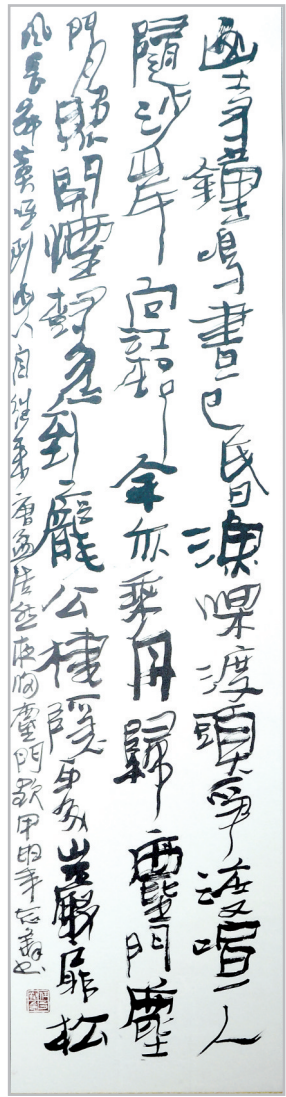 山寺鐘鳴晝已昏漁梁渡頭爭渡喧人
隨沙岸向江邨余亦乘舟歸鹿門鹿
門月照開煙樹忽到龐公棲隱處巖扉松
長寂寞幽人自往來唐孟浩然夜歸鹿門歌甲申年志書